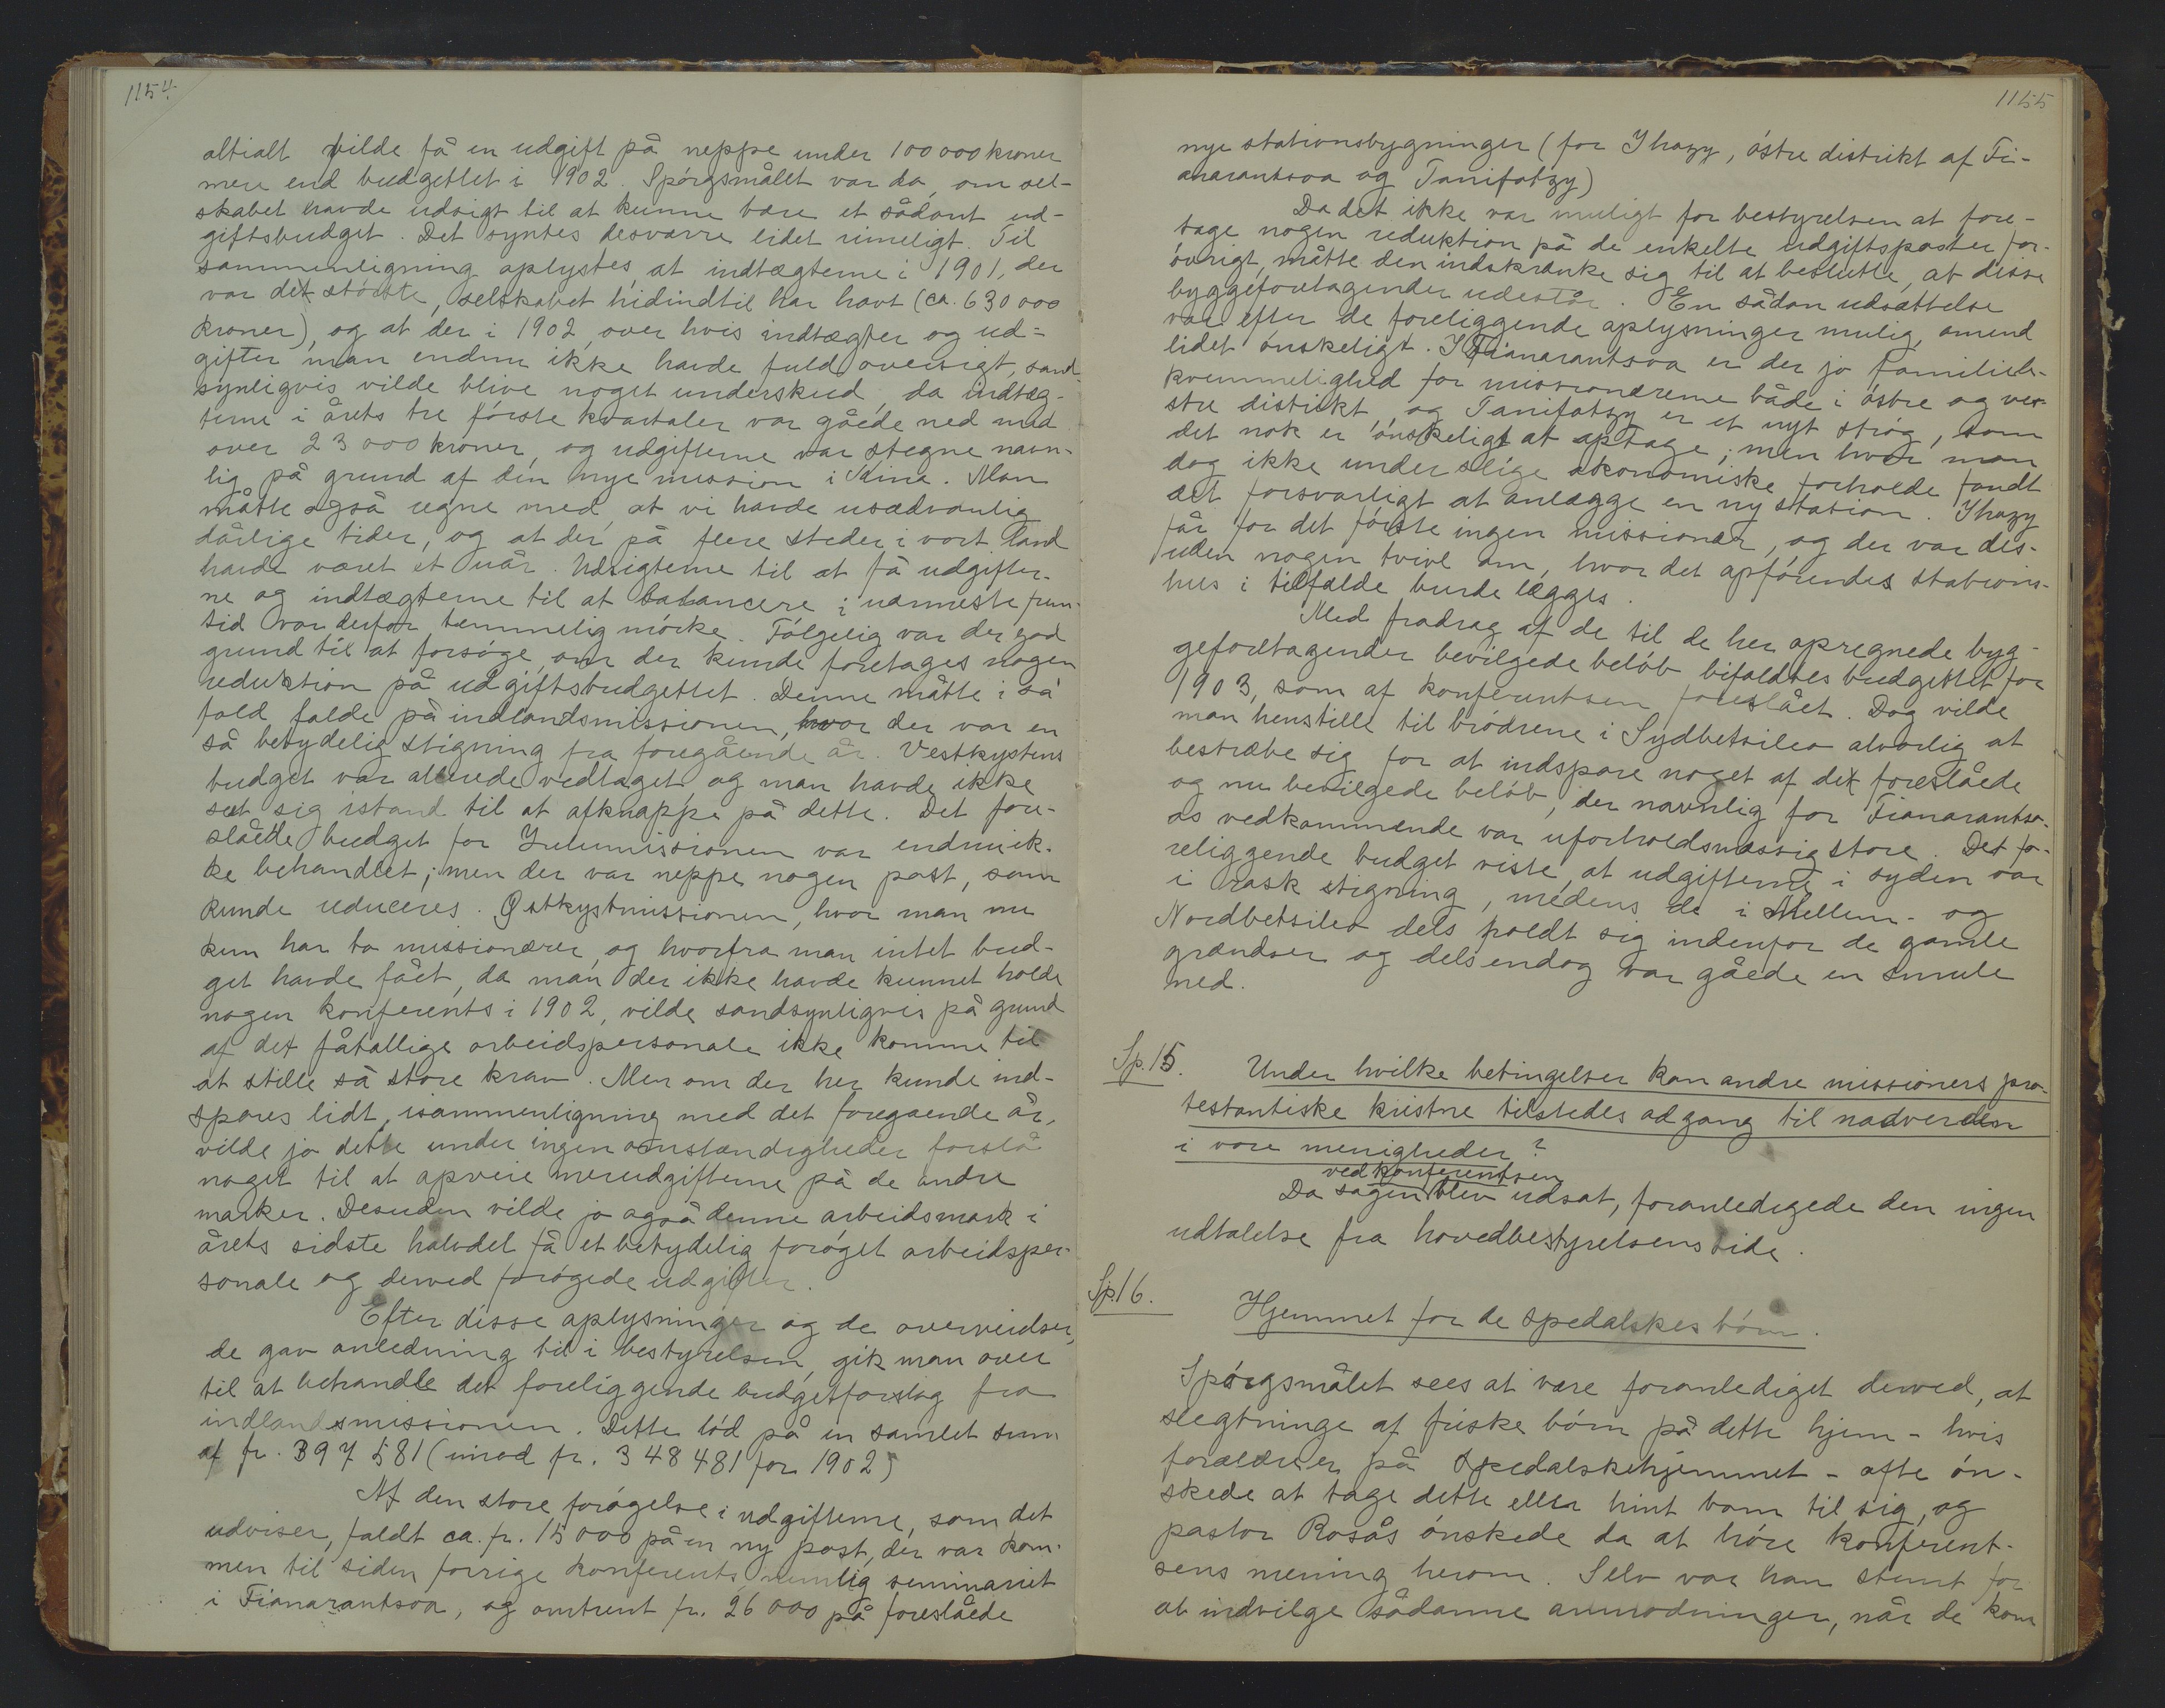 1154.
altialt vilde få en udgift på neppe under 100 000 kroner
mere end budgettet i 1902. Spórgsmålet var da, om sel-
skabet havde udsigt til at kunne bære et sådant ud-
giftsbudget. Det syntes desværre lidet rimeligt. Til
sammenligning oplystes, at indtægterne i 1901, der
var det stórste, selskabet hidindtil har havt (ca. 630 000
kroner), og at der i 1902, over hvis indtægter og ud-
gifter man endnu ikke havde fuld oversigt, sand-
synligvis vilde blive noget underskud, da indtæg-
terne i årets tre fórste kvartaler var gåede ned med
over 23 000 kroner, og udgifterne var stegne navn-
lig på grund af den nye mission i Kina. Man
måtte også regne med, at vi havde usædvanlig
dårlige tider, og at der på flere steder i vort land
havde været et uår. Udsigterne til at få udgifter-
ne og indtægterne til at balancere i nærmeste frem-
tid var derfor temmelig mórke. Fólgelig var der god
grund til at forsóge, om der kunde foretages nogen
reduktion på udgiftsbudgettet. Denne måtte i så
fald falde på indlandsmissionen, hvor der var en
så betydelig stigning fra foregående år. Vestkystens
budget var allerede vedtaget, og man havde ikke
set sig istand til at afknappe på dette. Det fore-
slåede budget for Zulumissionen var endnu ik-
ke behandlet; men der var neppe nogen post, som
kunde reduceres. Østkystmissionen, hvor man nu
kun har to missionærer, og hvorfra man intet bud-
get havde fået, da man der ikke havde kunnet holde
nogen konferents i 1902, vilde sandsynligvis på grund
af det fåtallige arbeidspersonale ikke komme til
at stille så store krav. Men om der her kunde ind-
spares lidt, isammenligning med det foregående år,
vilde jo dette under ingen omstændigheder forslå
noget til at opveie merudgifterne på de andre
marker. Desuden vilde jo også denne arbeidsmark i
årets sidste halvdel få et betydelig foróget arbeidsper-
sonale og derved forógede udgifter.
Efter disse oplysninger og de overveielser,
de gav anledning til i bestyrelsen, gik man over
til at behandle det foreliggende budgetforslag fra
indlandsmissionen. Dette lód på en samlet sum
af fr. 397 581 (imod fr. 348 481 for 1902)
Af den store forógelse i udgifterne, som det
udviser, faldt ca. fr. 15 000 på en ny post, der var kom-
men til siden forrige konferents nemlig seminariet
i Fianarantsoa, og omtrent fr. 26 000 på foreslåede
1155
nye stationsbygninger (for Ihazy, óstre distrikt af Fi-
anarantsoa og Tanifotzy)
Da det ikke var muligt for bestyrelsen at fore-
tage nogen reduktion på de enkelte udgiftsposter for-
óvrigt, måtte den indskrænke sig til at beslutte, at disse
byggeforetagender udestår. En sådan udsættelse
var efter de foreliggende oplysninger mulig, omend
lidet ónskeligt. I Fianarantsoa er der jo familiebe-
kvemmelighed for missionærerne både i óstre og ve-
stre distrikt, og Tanifotzy er et nyt stróg, som
det nok er ónskeligt at optage; men hvor man
dog ikke under slige økonomiske forholde fandt
det forsvarligt at anlægge en ny station. Ihazy
får for det fórste ingen missionær, og der var des-
uden nogen tvivl om, hvor det opfórendes stations-
hus i tilfælde burde lægges.
Med fradrag af de til de her opregnede byg-
geforetagender bevilgede belób bifaldtes budgettet for
1903, som af konferentsen foreslået. Dog vilde
man henstille til bródrene i Sydbetsileo alvorlig at
bestræbe sig for at indspare noget af det foreslåede
og nu bevilgede belób, der navnlig for Fianarantso-
as vedkommende var uforholdsmæssig store. Det fo-
religgende budget viste, at udgifterne i syden var
i rask stigning, medens de i Mellem- og
Nordbetsileo dels holdt sig indenfor de gamle
grændser og dels endog var gåede en smule
ned.
Sp. 15. Under hvilke betingelser kan andre missioners pro-
testantiske kristne tilstedes adgang til nadverden
i vore menigheder?
ved konferentsen
Da sagen blev udsat, foranledigede den ingen
udtalelse fra hovedbestyrelsens side.
Sp. 16. Hjemmet for de spedalskes bórn.
Spórgsmålet sees at være foranlediget derved, at
slegtninge af friske bórn på dette hjem - hvis
forældre er på Spedalskehjemmet - ofte ón-
skede at tage dette eller hint barn til sig, og
pastor Rosås ónskede da at hóre konferent-
sens mening herom. Selv var han stemt for
at indvilge sådanne anmodninger, når de kom